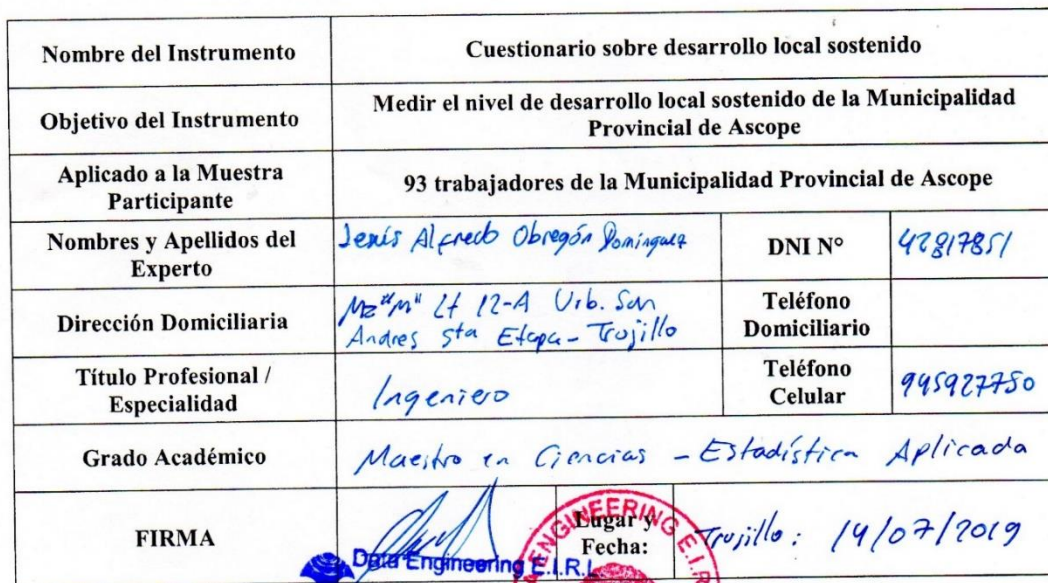 Nombre del Instrumento
Cuestionario sobre desarrollo local sostenido
Objetivo del Instrumento
Medir el nivel de desarrollo local sostenido de la Municipalidad
Provincial de Ascope
Aplicado a la Muestra
Participante
93 trabajadores de la Municipalidad Provincial de Ascope
Nombres y Apellidos del
Experto
Jesús Alfredo Obregón Domínguez
DNI N°
42817851
Dirección Domiciliaria
Mz "M" Lt 12-A Urb. San
Andres 5ta Etapa - Trujillo
Teléfono
Domiciliario
Título Profesional /
Especialidad
Ingeniero
Teléfono
Celular
945927750
Grado Académico
Maestro en Ciencias - Estadística Aplicada
FIRMA
Data Engineering E.I.R.L
Lugar y
Fecha:
ENGINEERING E.I.R
Trujillo: 14/07/2019